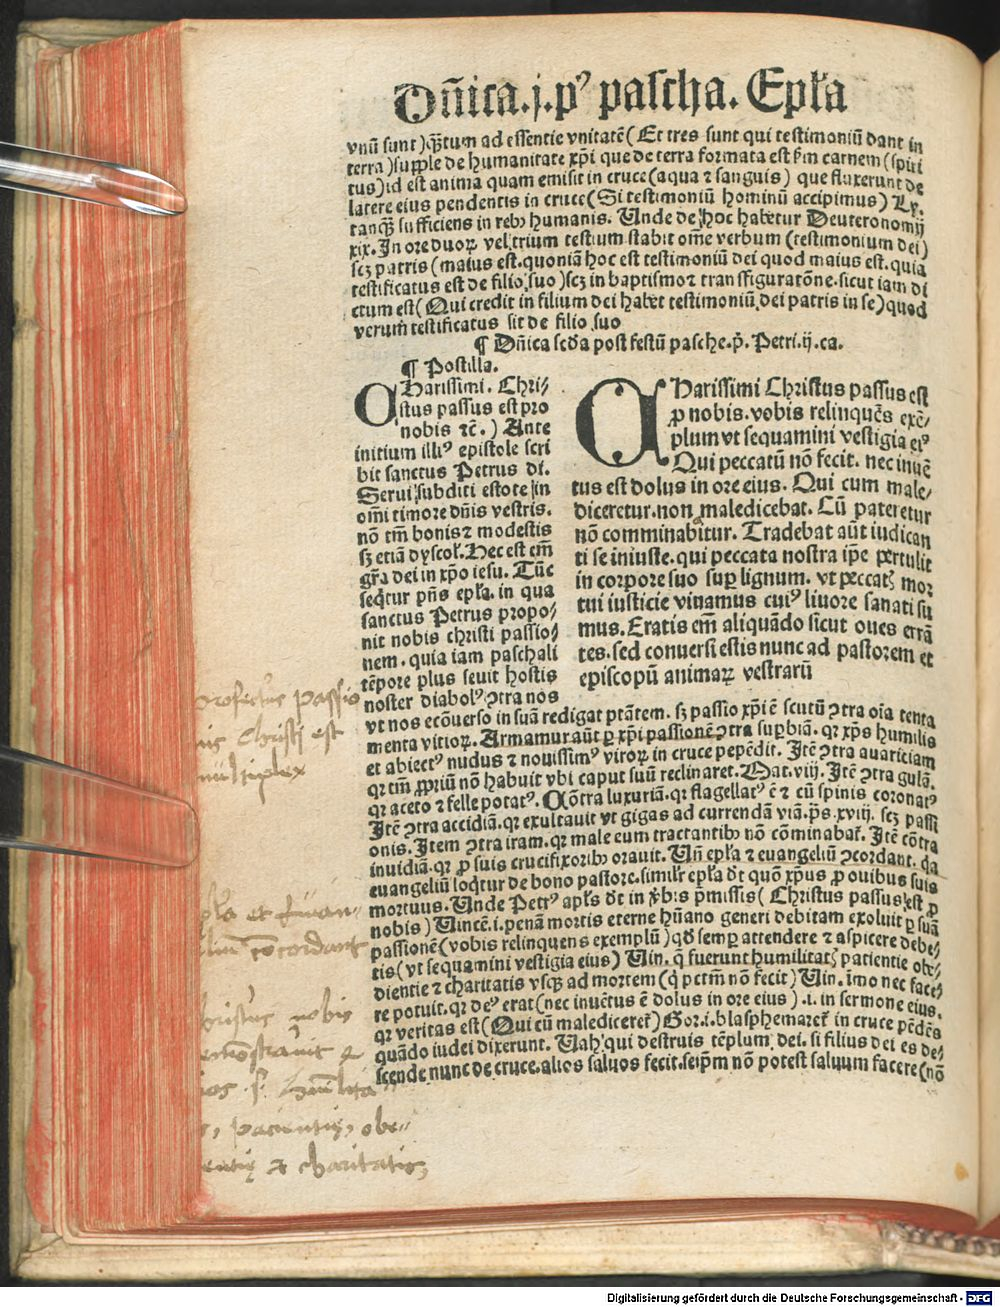 Dn̄ica.j.pꝰ pascha. Epl̄a
vnū sunt)q̄tum ad essentie vnitatē(Et tres sunt qui testimoniū dant in
terra)supple de humanitate xp̄i que de terra formata est ẜm carnem(spiri
tus)id est anima quam emisit in cruce(aqua ⁊ sanguis) que fluxerunt de
latere eius pendentis in cruce(Si testimoniū hominū accipimus) Ly.
tanq̄ꝫ sufficiens in rebꝰ humanis. Unde de hoc habetur Deuteronomij
xix. In ore duoꝝ vel trium testium stabit om̄e verbum (testimonium dei)
scꝫ patris(maius est.quoniā hoc est testimoniū dei quod maius est.quia
testificatus est de filio suo)scꝫ in baptismo⁊ transfiguratōne.sicut iam di
ctum est(Qui credit in filium dei habet testimoniū dei patris in se)quod
verum testificatus sit de filio suo
¶ Dn̄ica scd̄a post festū pasche.p̄. Petri.ij.ca.
¶ Postilla.
CHarissimi. Chri⸗
stus passus est pro
nobis ⁊c̄.) Ante
initium illiꝰ epistole scri
bit sanctus Petrus di.
Serui subditi estote in
om̄i timore dn̄is vestris.
nō tm̄ bonis⁊ modestis
sꝫ etiā dyscol̄. Hec est em̄
gr̄a dei in xp̄o iesu. Tūc
seq̄tur pn̄s epl̄a. in qua
sanctus Petrus propo⸗
nit nobis christi passio⸗
nem. quia iam paschali
tēpore plus seuit hostis
noster diabolꝰ ꝯtra nos
CHarissimi Christus passus est
ꝓ nobis.vobis relinquēs exē⸗
plum vt sequamini vestigia eiꝰ
Qui peccatū nō fecit. nec inuē
tus est dolus in ore eius. Qui cum male⸗
diceretur.non maledicebat. Cū pateretur
nō comminabitur. Tradebat aūt iudican
ti se iniuste.qui peccata nostra ip̄e pertulit
in corpore suo suꝑ lignum. vt peccatꝭ mor
tui iusticie viuamus cuiꝰ liuore sanati su
mus. Eratis em̄ aliquādo sicut oues errā
tes.sed conuersi estis nunc ad pastorem et
episcopū animaꝝ vestrarū
vt nos ecōuerso in suā redigat ptātem. sꝫ passio xp̄i ē scutū ꝯtra oīa tenta
menta vitioꝝ. Armamur aūt ꝑ xp̄i passionē ꝯtra suꝑbiā. qꝛ xp̄s humilis
et abiectꝰ nudus ⁊ nouissimꝰ viroꝝ in cruce pepēdit. Itē ꝯtra auariciam
qꝛ tm̄ ꝓpriū nō habuit vbi caput suū reclinaret. Mat. viij. Itē ꝯtra gulā.
qꝛ aceto ⁊ felle potatꝰ. Cōtra luxuriā.qꝛ flagellatꝰ ē ⁊ cū spinis coronatꝰ
Itē ꝯtra accidiā.qꝛ exultauit vt gigas ad currendā viā.p̄s.xviij. scꝫ passi
onis. Item ꝯtra iram.qꝛ male eum tractantibꝰ nō cōminabat̄. Itē cōtra
inuidiā.qꝛ ꝓ suis crucifixoribꝰ orauit. Un̄ epl̄a ⁊ euangeliū ꝯcordant. qꝛ
euangeliū loq̄tur de bono pastore.simil̄r epl̄a dt̄ quō xp̄us ꝓ ouibus suis
mortuus. Unde Petrꝰ apl̄s dt̄ in v̄bis p̄missis( Christus passus est ꝓ
nobis) Uincē.i.penā mortis eterne hūano generi debitam exoluit ꝑ suā
passionē(vobis relinquens exemplū) qd̄ semꝑ attendere ⁊ aspicere debe⸗
tis(vt sequamini vestigia eius) Uin. q̄ fuerunt humilitatꝭ patientie obe⸗
dientie ⁊ charitatis vsqꝫ ad mortem (q̄ pctm̄ nō fecit) Uin. īmo nec face⸗
re potuit.qꝛ deꝰ erat(nec inuētus ē dolus in ore eius) .i. in sermone eius.
qꝛ veritas est(Qui cū malediceret̄) Gor.i.blasphemaret̄ in cruce pēdēs
quādo iudei dixerunt. Uah qui destruis tēplum dei. si filius dei es de⸗
scende nunc de cruce.alios saluos fecit.seip̄m nō potest saluum facere(nō
Passio
Christi est
multiplex
et Euan⸗
concordant
nobis
⁊
humilita
pacientie, obe⸗
⁊ charitatis
Digitalisierung gefördert durch die Deutsche Forschungsgemeinschaft - DFG